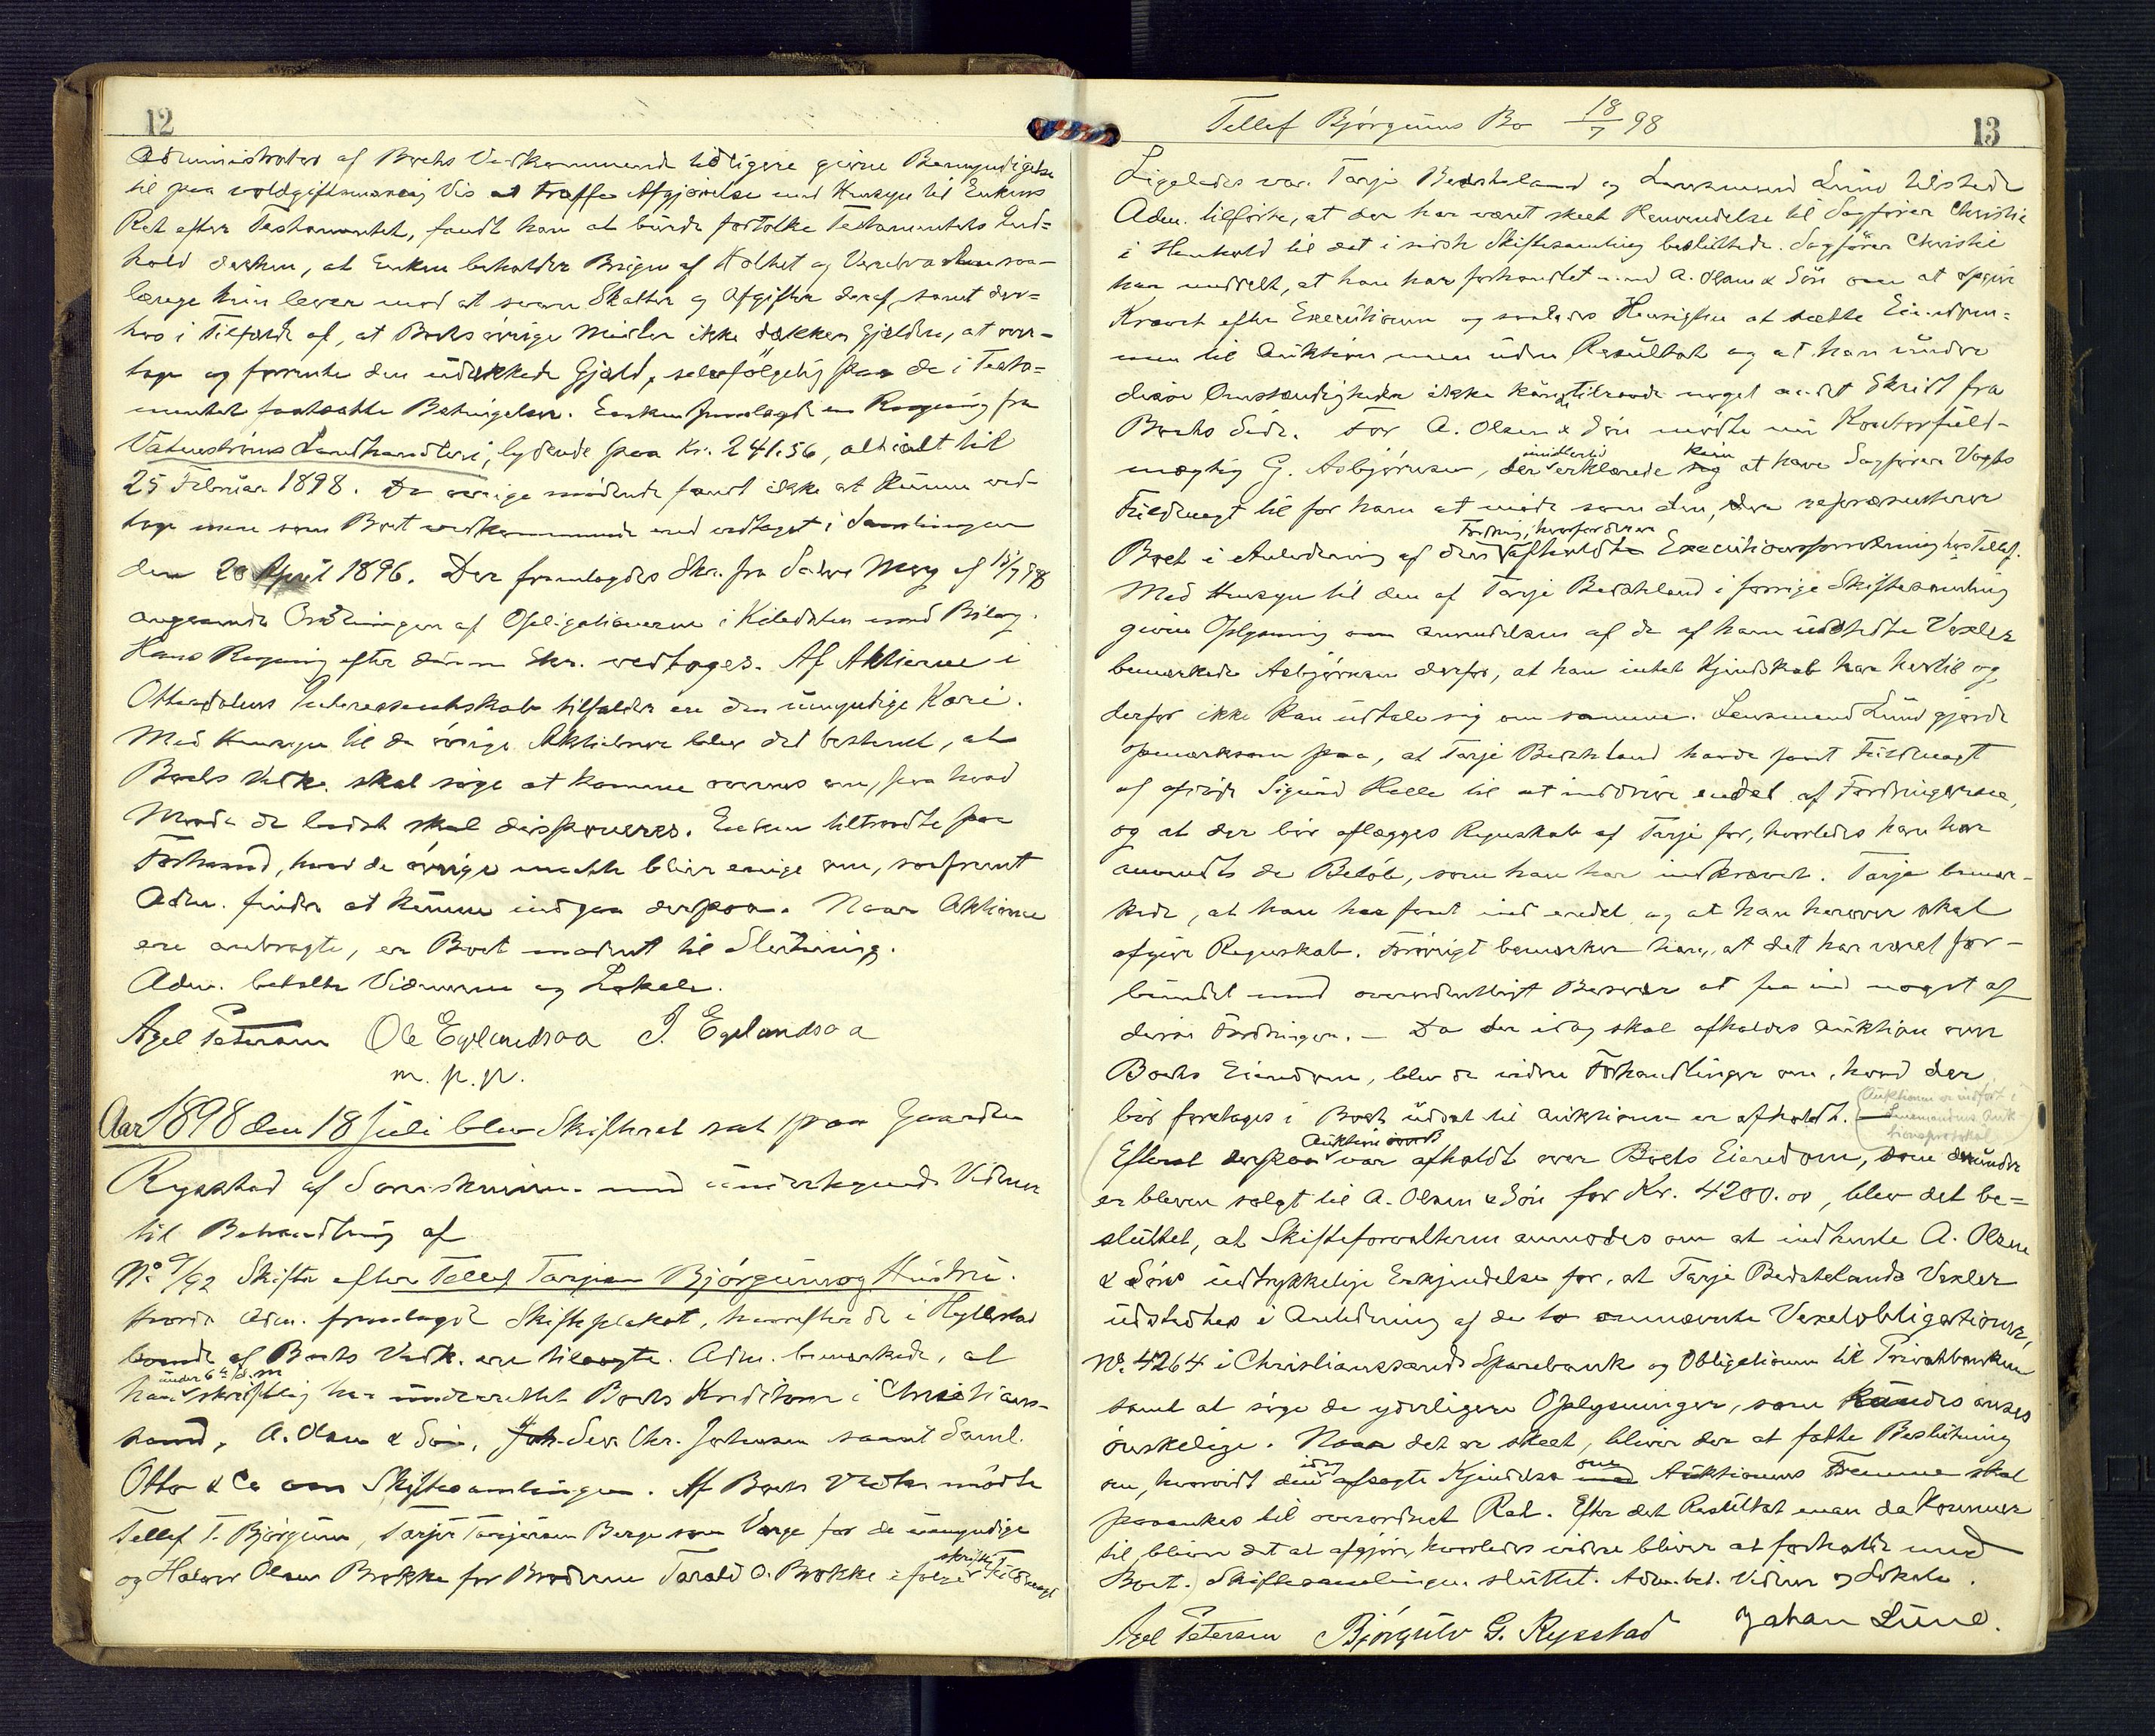 12
Administrator af Boets Vedkommende tidligere givne Bemyndigelse
til paa voldgiftsmæssig Vis at træffe Afgjørelse med Hensyn til Enkens
Ret efter Testamentet, fandt han at burde fortolke Testamentets Ind=
hold derhen, at Enken beholder Brugen af Holtet og saa-
længe hun lever mod at svare Skatter og Afgifter deraf, samt der=
hos i Tilfælde af, at Boets øvrige Midler ikke dækker Gjælden, at over-
tage og forrente den udækkede Gjæld, selvfølgelig paa de i Testa=
mentet fastsatte Betingelser. Enken fremlagde en Regning fra
Vatnestrøms Landhandleri, lydende paa Kr. 241.56, altialt til
25 Februar 1898. De øvrige mødende fandt ikke at kunne ved-
tage mere som Boet vedkommende end vedtaget i Samlingen
den 20 April 1896. Der fremlagdes Skr. fra Morg af 15/7 98
angaaende af Obligationerne i med Bilag.
Hans Regning efter denne Skr. vedtoges. Af Aktierne i
Otterdalens Interessentskab tilfalder en den umyndige Kari.
Med Hensyn til de øvrige Aktiebreve blev det bestemt, at
Boets Vedk. skal søge at komme overens om, paa hvad
Maade de bedst skal disponeres. Enken tiltraadte paa
Forhaand, hvad de øvrige maatte blive enige om, saafremt
Adm. finder at kunne indgaa derpaa. Naar Aktierne
ere anbragte, er Boet modent til Slutning.
Adm. betalte Vidnerne og Lokale.
Axel Petersen Ole Eglandsaa J. Eglandsaa
m. p. p.
Aar 1898 den 18 Juli blev Skifteret sat paa Gaarden
Rysstad af Sorenskriveren med undertegnede Vidner
til Behandling af
No 9/92 Skifte efter Tellef Tarjesen Bjørgum og Hustru.
hvorda Adm. fremlagde Skifteplakat, hvorefter de i Hyllestad
boende af Boets Vedk. ere tilsagte. Adm. bemærkede, at
under 6te d.m
han skriftlig har underrettet Boets Kreditorer i Christians-
sand, A. Olsen & Søn, Joh. Chr. Johnsen samt Saml.
Otto & Co om Skiftesamlingen. Af Boets Vedk. mødte
Tellef T. Bjørgum, Tarjer Tarjersen Berge som Værge for de umyndige
skriftlig
og Halvor Olsen Brokke for Broderen Tarald O. Brokke ifølge Fuldmagt
Tellef Bjørgums Bo 18/7 98
13
Ligeledes var Tarje Besteland og Lensmand Lund tilstede
Adm. tilførte, at der har været skeet Henvendelse til Sagfører Christie
i Henhold til det i sidste Skiftesamling besluttede. Sagfører Christie
har meddelt, at han har forhandlet med A. Olsen & Søn om at opgive
Kravet efter Executionen og saaledes Hensigten at sætte Eiendom-
men til Auktion men uden Resultat og at han under
disse Omstændigheder ikke kunde tilraade noget andet Skridt fra
Boets Side. For A. Olsen & Søn mødte nu Kontorfuld-
imidlertid kun
mægtig G. Asbjørnsen, der erklærede sig at have Sagfører Vogts
Fuldmagt til for ham at møde som den, der repræsenterer
Fordring, hvorfor der er
Boet i Anledning af den afholdte Executionsforretning hos Tellef.
Med Hensyn til den af Tarje Besteland i forrige Skiftesamling
givne Oplysning om Anvendelsen af de af ham udstedte Vexler
bemærkede Asbjørnsen derfor, at han intet Kjendskab har hertil og
derfor ikke kan udtale sig om samme. Lensmand Lund gjorde
opmærksom paa, at Tarje Besteland havde faaet Fuldmagt
af afdøde Sigurd Helle til at inddrive endel af Fordringerne,
og at der bør aflægges Regnskab af Tarje for, hvorledes han har
anvendt de Beløb, som han har indkrævet. Tarje bemær-
kede, at han har faaet ind endel og at han herover skal
afgive Regnskab. Forøvrigt bemærker han, at det har været for-
bundet med overordentligt Besvær at faa ind noget af
disse Fordringer. – Da der idag skal afholdes Auktion over
Boets Eiendom, blev de videre Forhandlinger om, hvad der
bør foretages i Boet udsat til Auktionen er afholdt. –
(Auktionen er indført i
Lensmandens Auk-
tionsprotokol
Auktion
Efterat derpaa var afholdt over Boets Eiendom, som derunder
er bleven solgt til A. Olsen & Søn for Kr. 4200.00, blev det be=
sluttet, at Skifteforvalteren anmodes om at indhente A. Olsen
& Søns udtrykkelige Erkjendelse for, at Tarje Bestelands Vexler
udstedtes i Anledning af de to omnævnte Vexelobligationer,
No. 4264 i Christianssands Sparebank og Obligationen til Privatbanken
samt at søge de yderligere Oplysninger, som kunde ansees
ønskelige. Naar det er skeet, bliver der at fatte Beslutning
idag om
om, hvorvidt den afsagte Kjendelse med Auktionens Fremme skal
paaankes til overordnet Ret. Efter det Resultat man da kommer
til, bliver det at afgjøre, hvorledes videre bliver at forholde med
Boet. Skiftesamlingen sluttet. Adm. bet. Vidner og Lokale.
Axel Petersen Bjørgulv G. Rysstad Johan Lund.